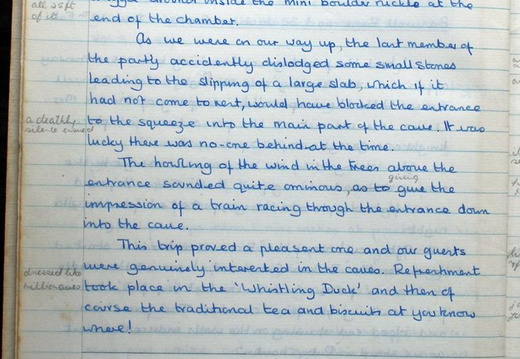 around inside the mini boulder ruckle at the
all 25ft
of it
end of the chamber.
As we were on our way up, the last member of
the party accidently dislodged some small stones
leading to the slipping of a large slab, which if it
had not come to rest, would have blocked the entrance
a deathly
silence ensued
to the squeeze into the main part of the cave. It was
lucky there was no-one behind at the time.
The howling of the wind in the trees above the
giving
entrance sounded quite ominous, as to give the
impression of a train racing through the entrance down
into the cave.
This trip proved a pleasent one and our guests
dressed like
millionaires
were genuinely interested in the caves. Refreshment
took place in the 'Whistling Duck' and then of
course the traditional tea and biscuits at you know
where!